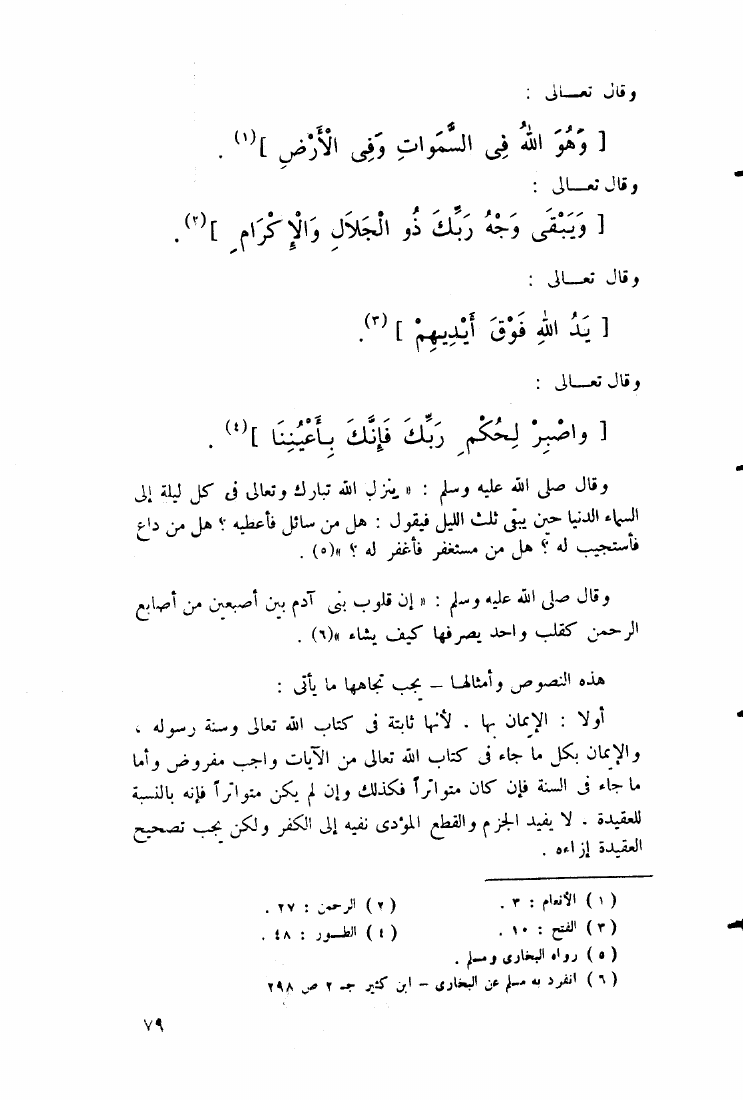 وقال تعـــالى :
[ وَهُوَ اللهُ فِى السَّمَواتِ وَفِى الْأَرْضِ ](١) .
وقال تعـــالى :
[ وَيَبْقَى وَجْهُ رَبِّكَ ذُو الْجَلَالِ وَالْإِكْرَامِ ](٢) .
وقال تعـــالى :
[ يَدُ اللهِ فَوْقَ أَيْدِيهِمْ ](٣) .
وقال تعـــالى :
[ واصْبِرْ لِحُكْمِ رَبِّكَ فَإِنَّكَ بِأَعْيُنِنَا ](٤) .
وقال صلى الله عليه وسلم : « ينزل الله تبارك وتعالى فى كل ليلة إلى
السماء الدنيا حين يبقى ثلث الليل فيقول : هل من سائل فأعطيه ؟ هل من داع
فأستجيب له ؟ هل من مستغفر فأغفر له ؟ »(٥) .
وقال صلى الله عليه وسلم : « إن قلوب بنى آدم بين أصبعين من أصابع
الرحمن كقلب واحد يصرفها كيف يشاء »(٦) .
هذه النصوص وأمثالها – يجب تجاهها ما يأتى :
أولا : الإيمان بها . لأنها ثابتة فى كتاب الله تعالى وسنة رسوله ،
والإيمان بكل ما جاء فى كتاب الله تعالى من الآيات واجب مفروض وأما
ما جاء فى السنة فإن كان متواتراً فكذلك وإن لم يكن متواتراً فإنه بالنسبة
للعقيدة . لا يفيد الجزم والقطع المؤدى نفيه إلى الكفر ولكن يجب تصحيح
العقيدة إزاءه .
(١) الأنعام : ٣ . (٢) الرحمن : ٢٧ .
(٣) الفتح : ١٠ . (٤) الطــور : ٤٨ .
(٥) رواه البخارى ومسلم .
(٦) انفرد به مسلم عن البخارى – ابن كثير جـ ٢ ص ٢٩٨
٧٩